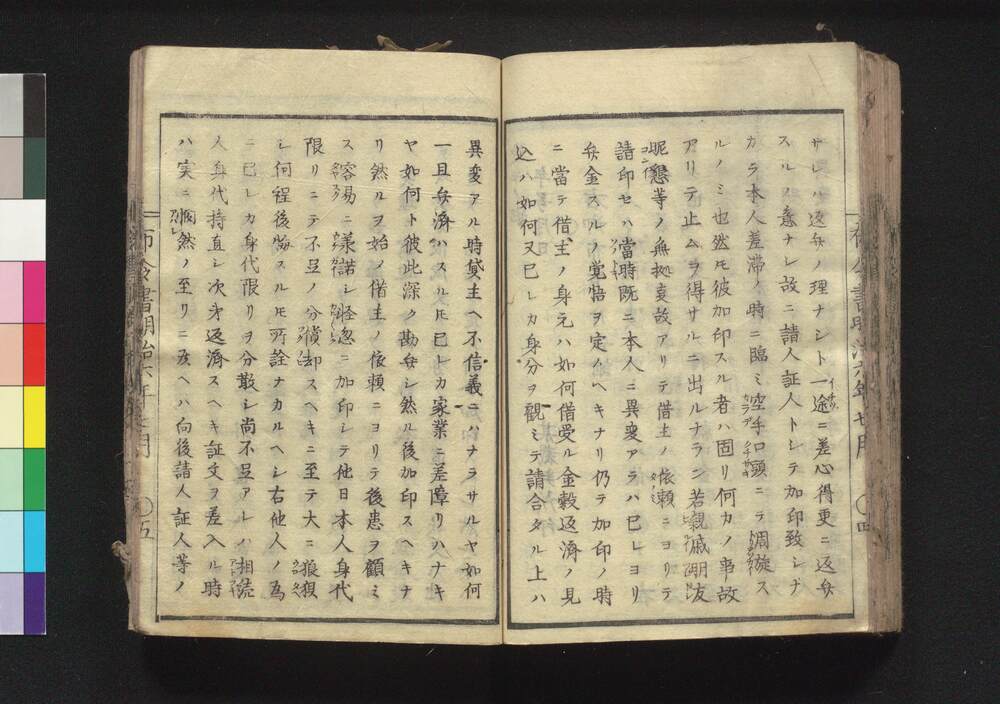 サレハ返弁ノ理ナシト一途ニ差心得更ニ返弁
スルノ意ナシ故ニ請人証人トシテ加印致シナ
カラ本人差滞ノ時ニ臨ミ空手口頭ニテ周旋ス
ルノミ也然𪜈彼加印スル者ハ固リ何カノ事故
アリテ止ムヲ得サルニ出ルナラン若親戚朋友
昵懇等ノ無拠哀故アリテ借主ノ依頼ニヨリテ
請印セハ當時既ニ本人ニ異変アラハ已レヨリ
弁金スルノ覚悟ヲ定ムヘキナリ仍テ加印ノ時
ニ當テ借主ノ身元ハ如何借受ル金穀返済ノ見
込ハ如何又已レカ身分ヲ観ミテ請合タル上ハ
布令書明治六年七月 四
異変アル時貸主ヘ不信義ニハナラサルヤ如何
一旦弁済ハスル𪜈已レカ家業ニ差障リハナキ
ヤ如何ト彼此深ク勘弁シ然ル後加印スヘキナ
リ然ルヲ始ノ借主ノ依頼ニヨリテ後患ヲ顧ミ
ス容易ニ承諾シ怪忽ニ加印シテ他日本人身代
限リニテ不足ノ分償却スヘキニ至テ大ニ狼狽
シ何程後悔スル𪜈所詮ナカルヘシ右他人ノ為
ニ已レカ身代限リヲ分散シ尚不足アレハ相続
人身代持直シ次第返済スヘキ証文ヲ差入ル時
ハ実ニ憫然ノ至リニ候ヘハ向後請人証人等ノ
布令書明治六年七月 五